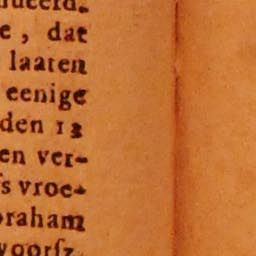 e, dat
laaten
eenige
den 12
en ver-
ſs vroe-
braham
voorſz.